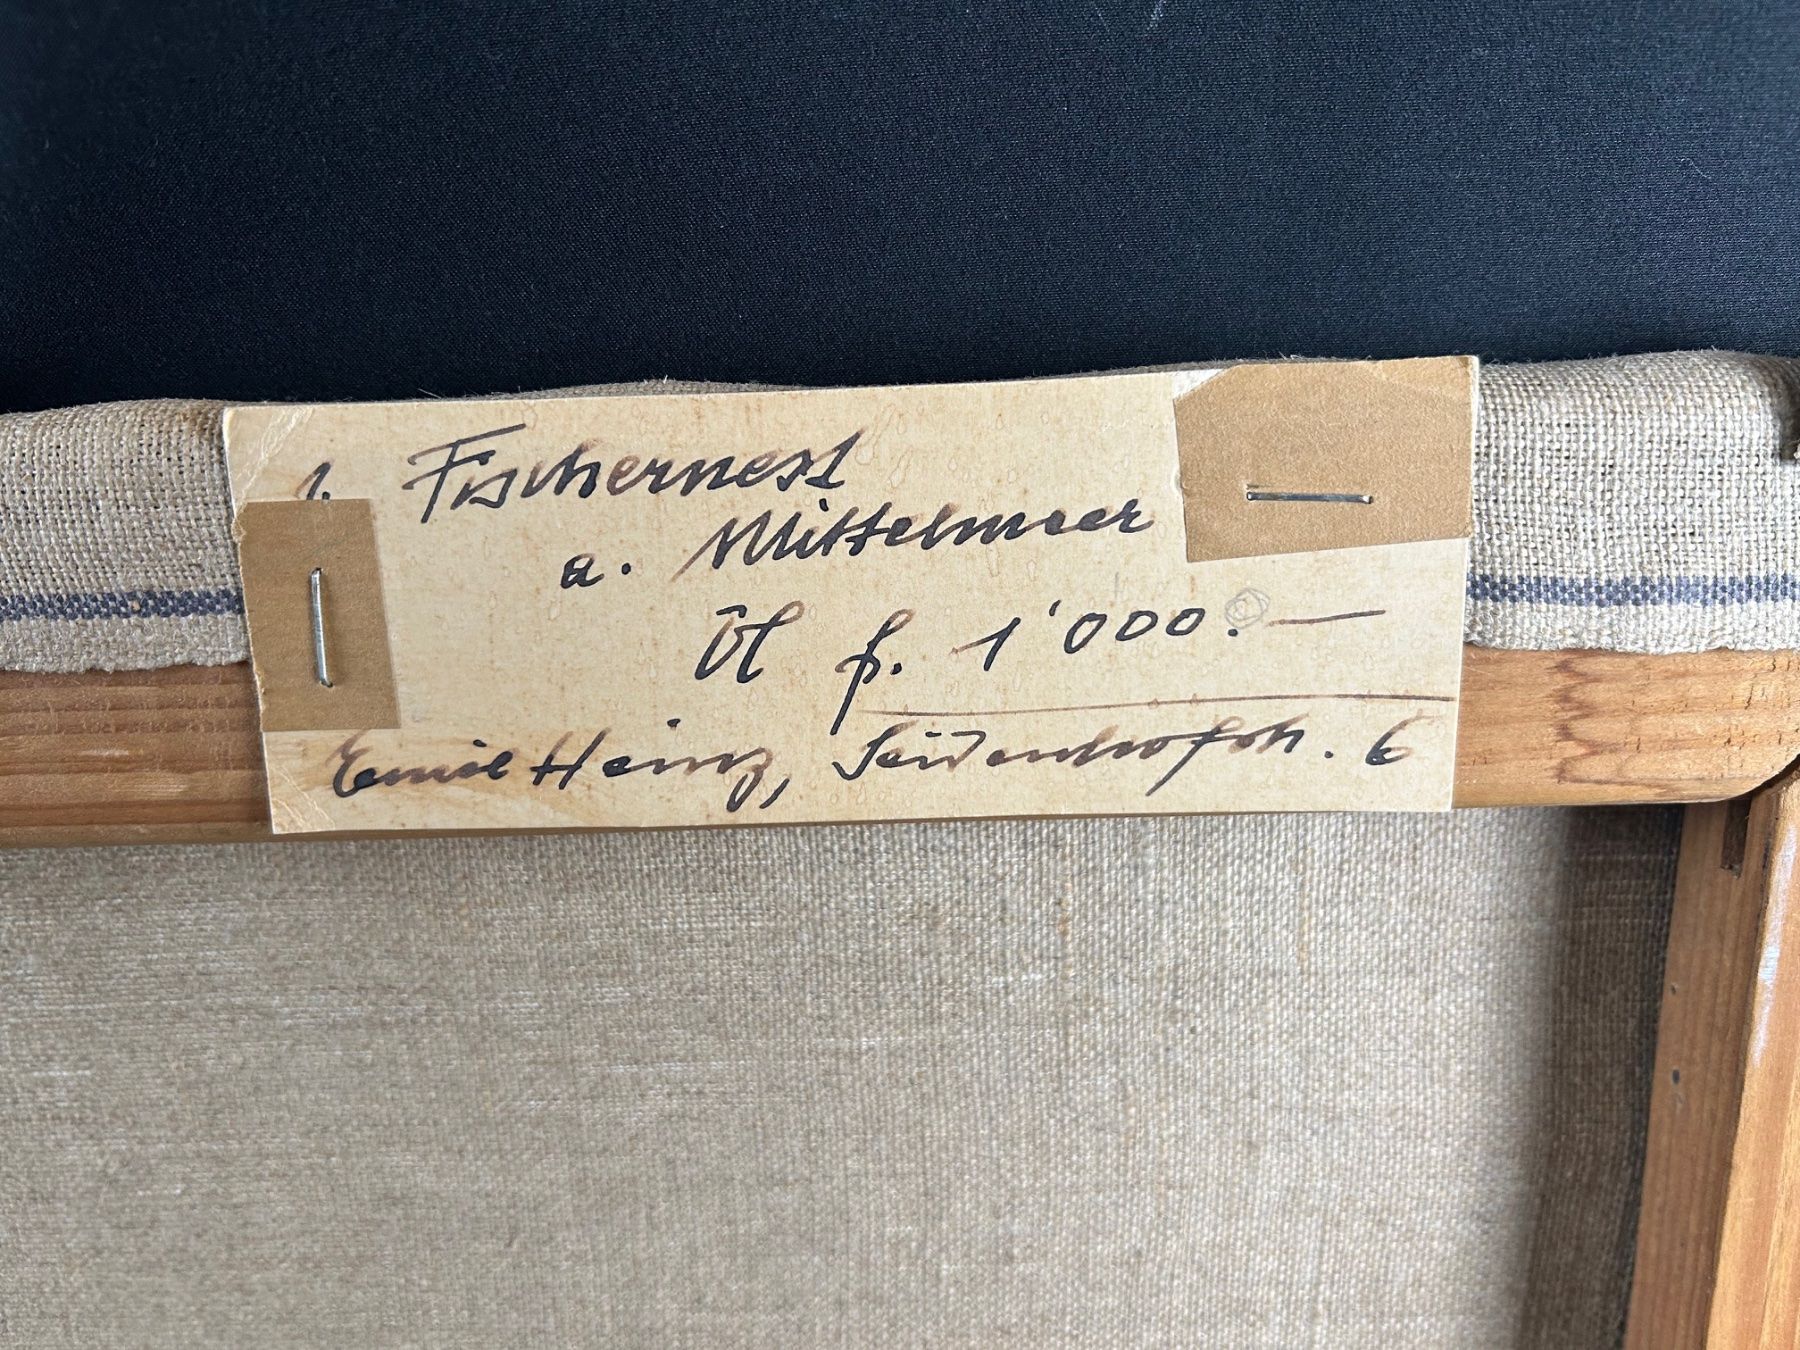 1. Fischernest
a. Mittelmeer
Öl fr. 1'000.—
Emil Heinz, Seidenhofstr. 6